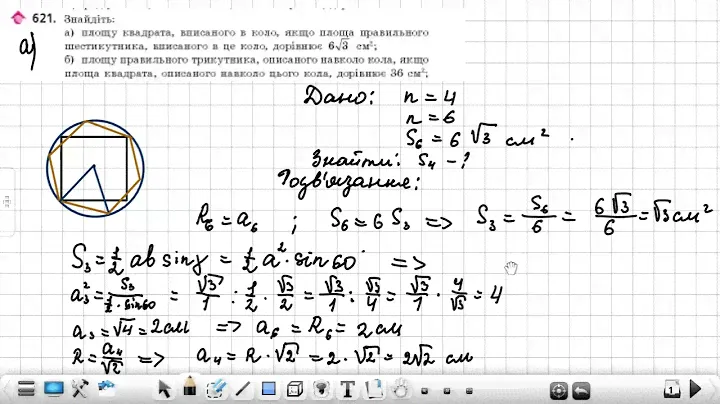 621. Знайдіть:
а) площу квадрата, вписаного в коло, якщо площа правильного
шестикутника, вписаного в це коло, дорівнює 6√3 см²;
б) площу правильного трикутника, описаного навколо кола, якщо
площа квадрата, описаного навколо цього кола, дорівнює 36 см²;
а)
Дано: n = 4
n = 6
S₆ = 6√3 см²
Знайти: S₄ - ?
Розв'язання:
R₆ = a₆ ; S₆ = 6 S₃ => S₃ = S₆/6 = 6√3/6 = √3 см²
S₃ = 1/2 ab sin γ = 1/2 a² · sin 60° =>
a₃² = S₃/(1/2 · sin 60) = √3/1 : 1/2 · √3/2 = √3/1 : √3/4 = √3/1 · 4/√3 = 4
a₃ = √4 = 2 см => a₆ = R₆ = 2 см
R = a₄/√2 => a₄ = R · √2 = 2 · √2 = 2√2 см
T
1